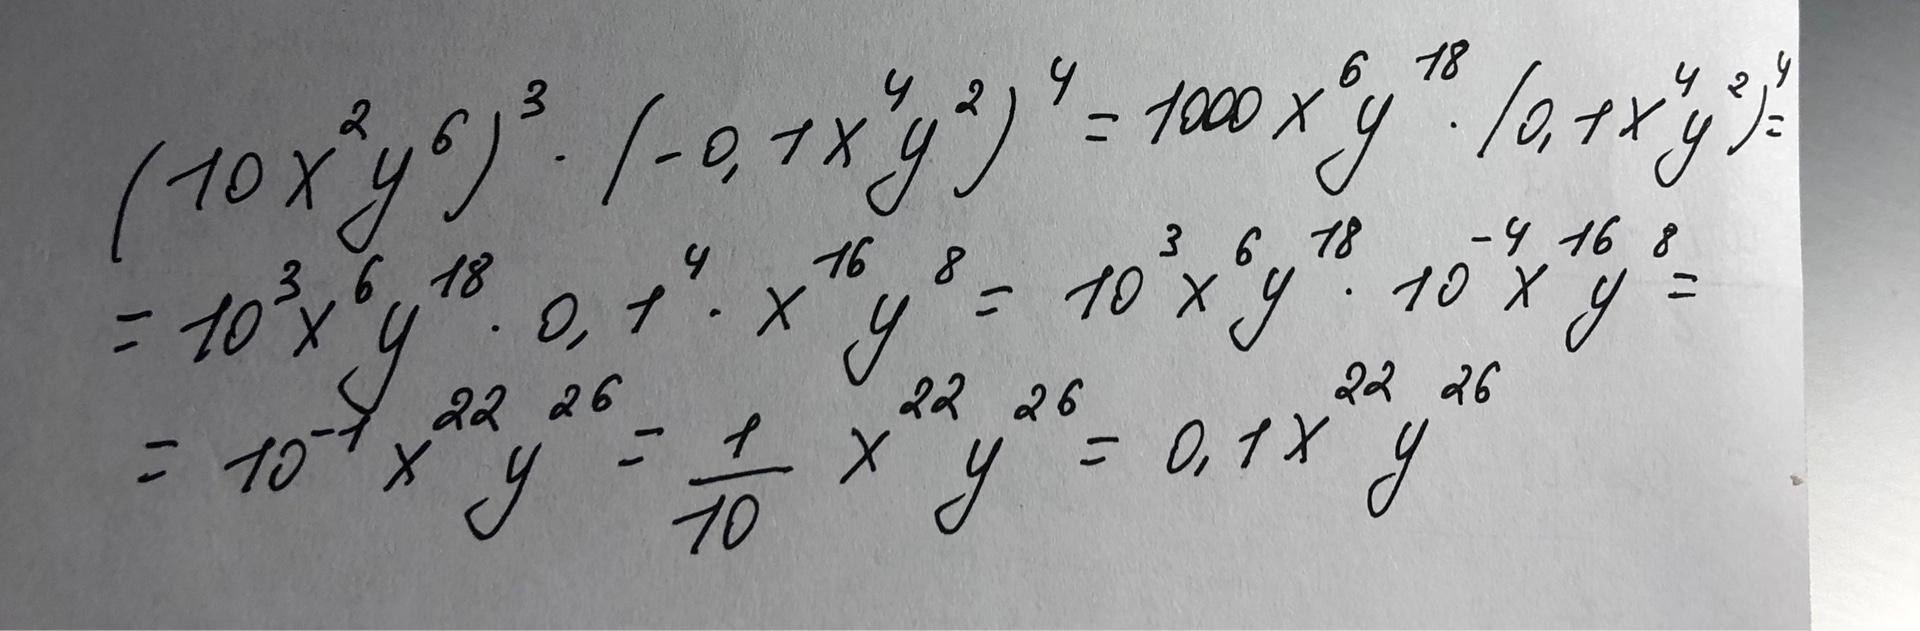 (10x²y⁶)³ · (-0,1x⁴y²)⁴ = 1000x⁶y¹⁸ · (0,1x⁴y²)⁴ =
= 10³x⁶y¹⁸ · 0,1⁴ · x¹⁶y⁸ = 10³x⁶y¹⁸ · 10⁻⁴x¹⁶y⁸ =
= 10⁻¹x²²y²⁶ = 1/10 x²²y²⁶ = 0,1x²²y²⁶